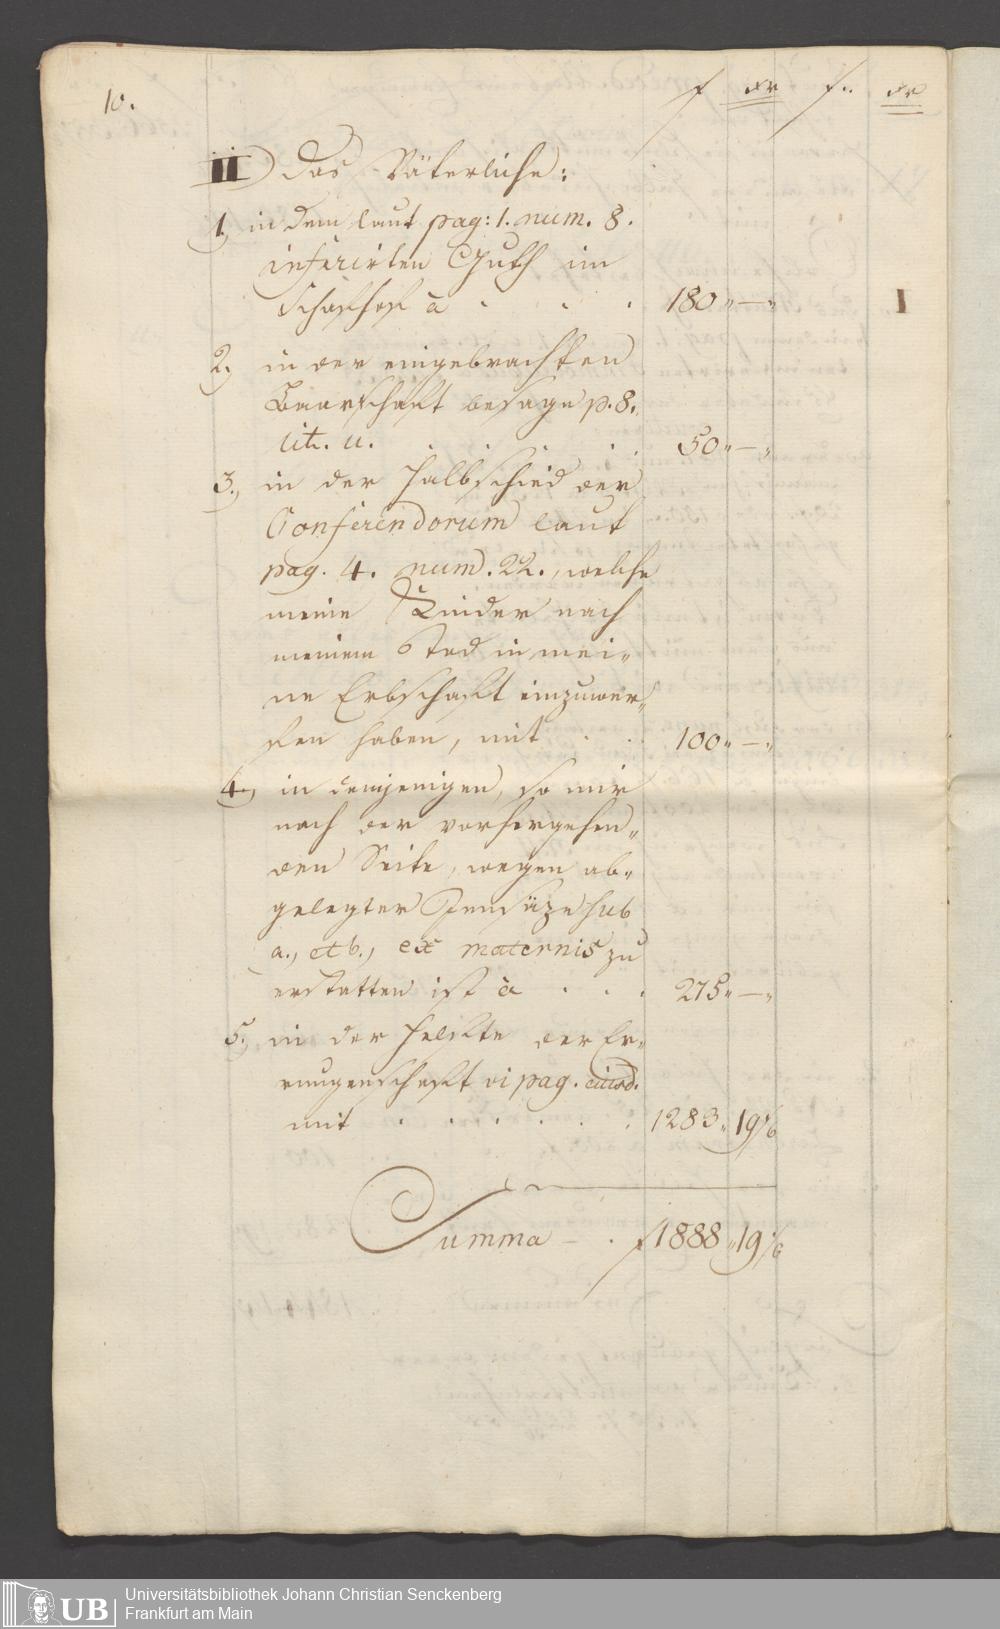 10.
f xr f.. xr
II) Das Väterliche:
1.) in dem laut pag: 1. num. 8.
inferirten Guth im
Schafhof à . . . 180 " — "
2.) in der eingebrachten
Baarschaft besage p. 8.
lit. u. . . . . 50 " — "
3.) in der Halbschied der
Conferendorum laut
pag. 4. num. 22., welche
meine Kinder nach
meinem Tod in mei-
ne Erbschaft einzuwer-
fen haben, mit . . 100 " — "
4.) in demjenigen, so mir
nach der vorhergehen-
den Seite, wegen ab-
gelegter sub
a., et b., ex maternis zu
erstatten ist à . . . 275 " — "
5.) in der Helfte der Er-
rungenschaft vi pag. eiusd.
mit . . . . . . 1283 " 19 1/6
Summa - . f 1888 " 19 1/6
UB
Universitätsbibliothek Johann Christian Senckenberg
Frankfurt am Main